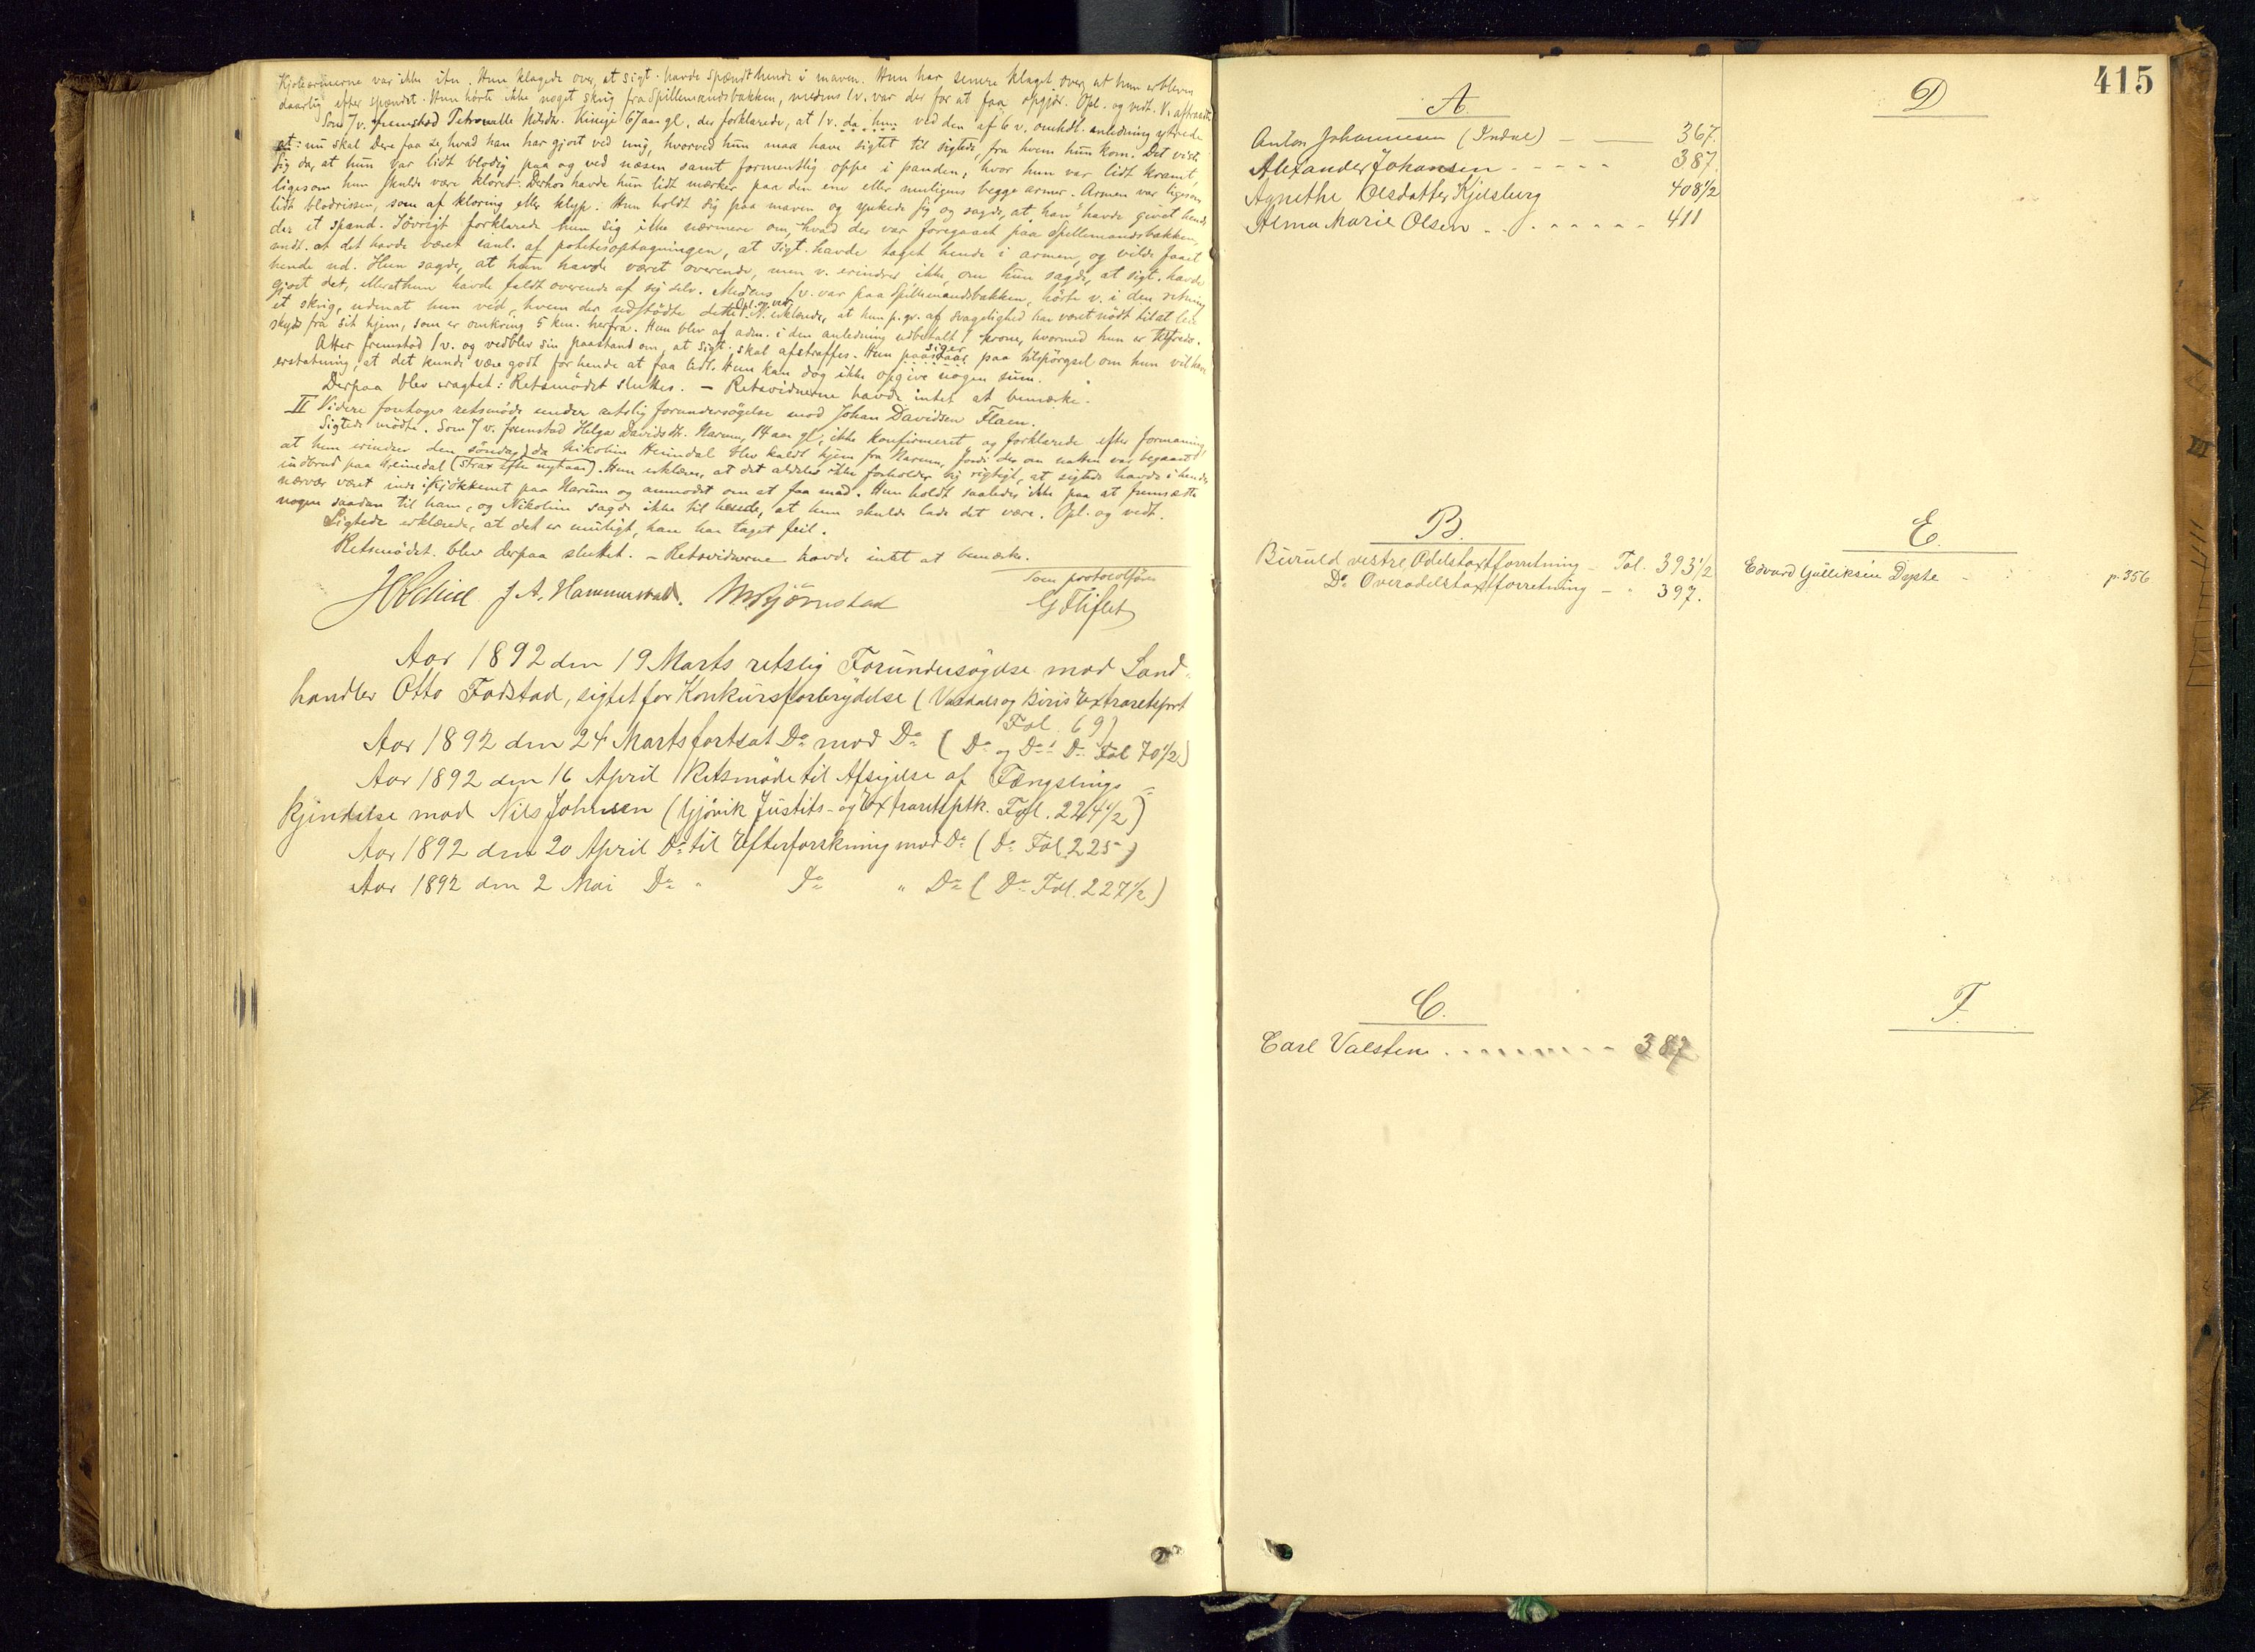 Kjoleærmerne var ikke itu. Hun klagede over, at sigt. havde spændt hende i maven. Hun har senere klaget over, at hun er bleven
daarlig efter spændet. Hun hørte ikke noget skrig fra Spillemandsbakken, medens 1 v. var der for at faa opgjør. Opl. og vedt. V. aftraadte
Som 7 v. fremstod Petronelle Nilsdr. 67 aar gl., der forklarede, at 1 v. da hun ved den af 6 v. omhdl. anledning ytrede
at: nu skal Dere faa se, hvad han har gjort ved mig, hvorved hun maa have sigtet til sigtede, fra hvem hun kom. Det viste
sig da, at hun var lidt blodig paa og ved næsen samt formentlig oppe i panden, hvor hun var lidt kramt,
ligesom hun skulde være kloret. Derhos havde hun lidt mærker paa den ene eller muligens begge armer. Armen var ligesom
lidt blodrissen, som af kloring eller klyp. Hun holdt sig paa maven og ynkede sig og sagde, at han havde givet hende
der et spænd. Iøvrigt forklarede hun sig ikke nærmere om, hvad der var foregaaet paa Spillemandsbakken,
andt. at det havde været i anl. af potetesoptagningen, at sigt. havde taget hende i armen, og vilde faaet
hende ud. Hun sagde, at hun havde været overende, men v. erindrer ikke, om hun sagde, at sigt. havde
gjort det, eller at hun havde faldt overende af sig selv. Medens 1 v. var paa Spillemandsbakken, hørte v. i den retning
et skrig, uden at hun ved, hvem der udstødte dette. Opl. og vedt. V. erklærede, at hun p. gr. af svagelighed har været nødt til at leie
skyds fra sit hjem, som er omkring 5 km. herfra. Hun blev af adm. i den anledning udbetalt 1 krone, hvormed hun er tilfreds.
Atter fremstod 1 v. og vedblev sin paastand om, at sigt. skal afstraffes. Hun paastaar siger paa tilspørgsel om hun vil have
erstatning, at det kunde være godt for hende at faa lidt. Hun kan dog ikke opgive nogen sum.
Derpaa blev eragtet: Retsmødet sluttes. – Retsvidnerne havde intet at bemærke.
II Videre foretoges retsmøde under retslig forundersøgelse mod Johan Davidsen Flaen.
Sigtede mødte. Som 7 v. fremstod Helga Davidsdr. Narum, 14 aar gl., ikke konfirmeret, og forklarede efter formaning,
at hun erindrer den søndag, da Nikoline Heimdal blev kaldt hjem fra Narum, fordi der om natten var begaaet
indbrud paa Heimdal (strax efter nytaar). Hun erklærer, at det aldeles ikke forholder sig rigtigt, at sigtede havde i hendes
nærvær været inde i kjøkkenet paa Narum og anmodet om at faa mad. Hun holdt saaledes ikke paa at fremsætte
nogen saadan til ham, og Nikoline sagde ikke til hende, at hun skulde lade det være. Opl. og vedt.
Sigtede erklærede, at det er muligt, han har taget feil.
Retsmødet blev derpaa sluttet. – Retsvidnerne havde intet at bemærke.
Som protocolfører
J. A. Hammerstad. M Bjørnstad G Fliflet
Aar 1892 den 19 Marts retslig Forundersøgelse mod Land-
handler Otto Fodstad, sigtet for Konkursforbrydelse (Vardals og Biris Extraretsprt
Fol. 69)
Aar 1892 den 24 Marts fortsat Do mod Do (Do og Do's Do Fol 70 1/2)
Aar 1892 den 16 April Retsmøde til Afsigelse af Fængslings-
kjendelse mod Nils Johnsen (Gjøvik Justits- og Extraretsptk. Fol. 224 1/2)
Aar 1892 den 20 April Do til Efterforskning mod Do (Do Fol. 225)
Aar 1892 den 2 Mai Do " Do " Do (Do Fol. 227 1/2)
415
A.
Anton Johannesen (Indal) – — 367.
Alexander Johansen - - - - 387.
Agnethe Olsdatter Kjelsberg 408 1/2
Alma Marie Olsen . . . - - - - - 411
D
B.
Buruld vestre Odelstaxtforretning – Fol. 393 1/2
Do Overodelstaxtforretning – " 397.
E.
Edvard Gulliksen Dyste – : p. 356
C.
Carl Valsten . . . . . . . . . 387
F.